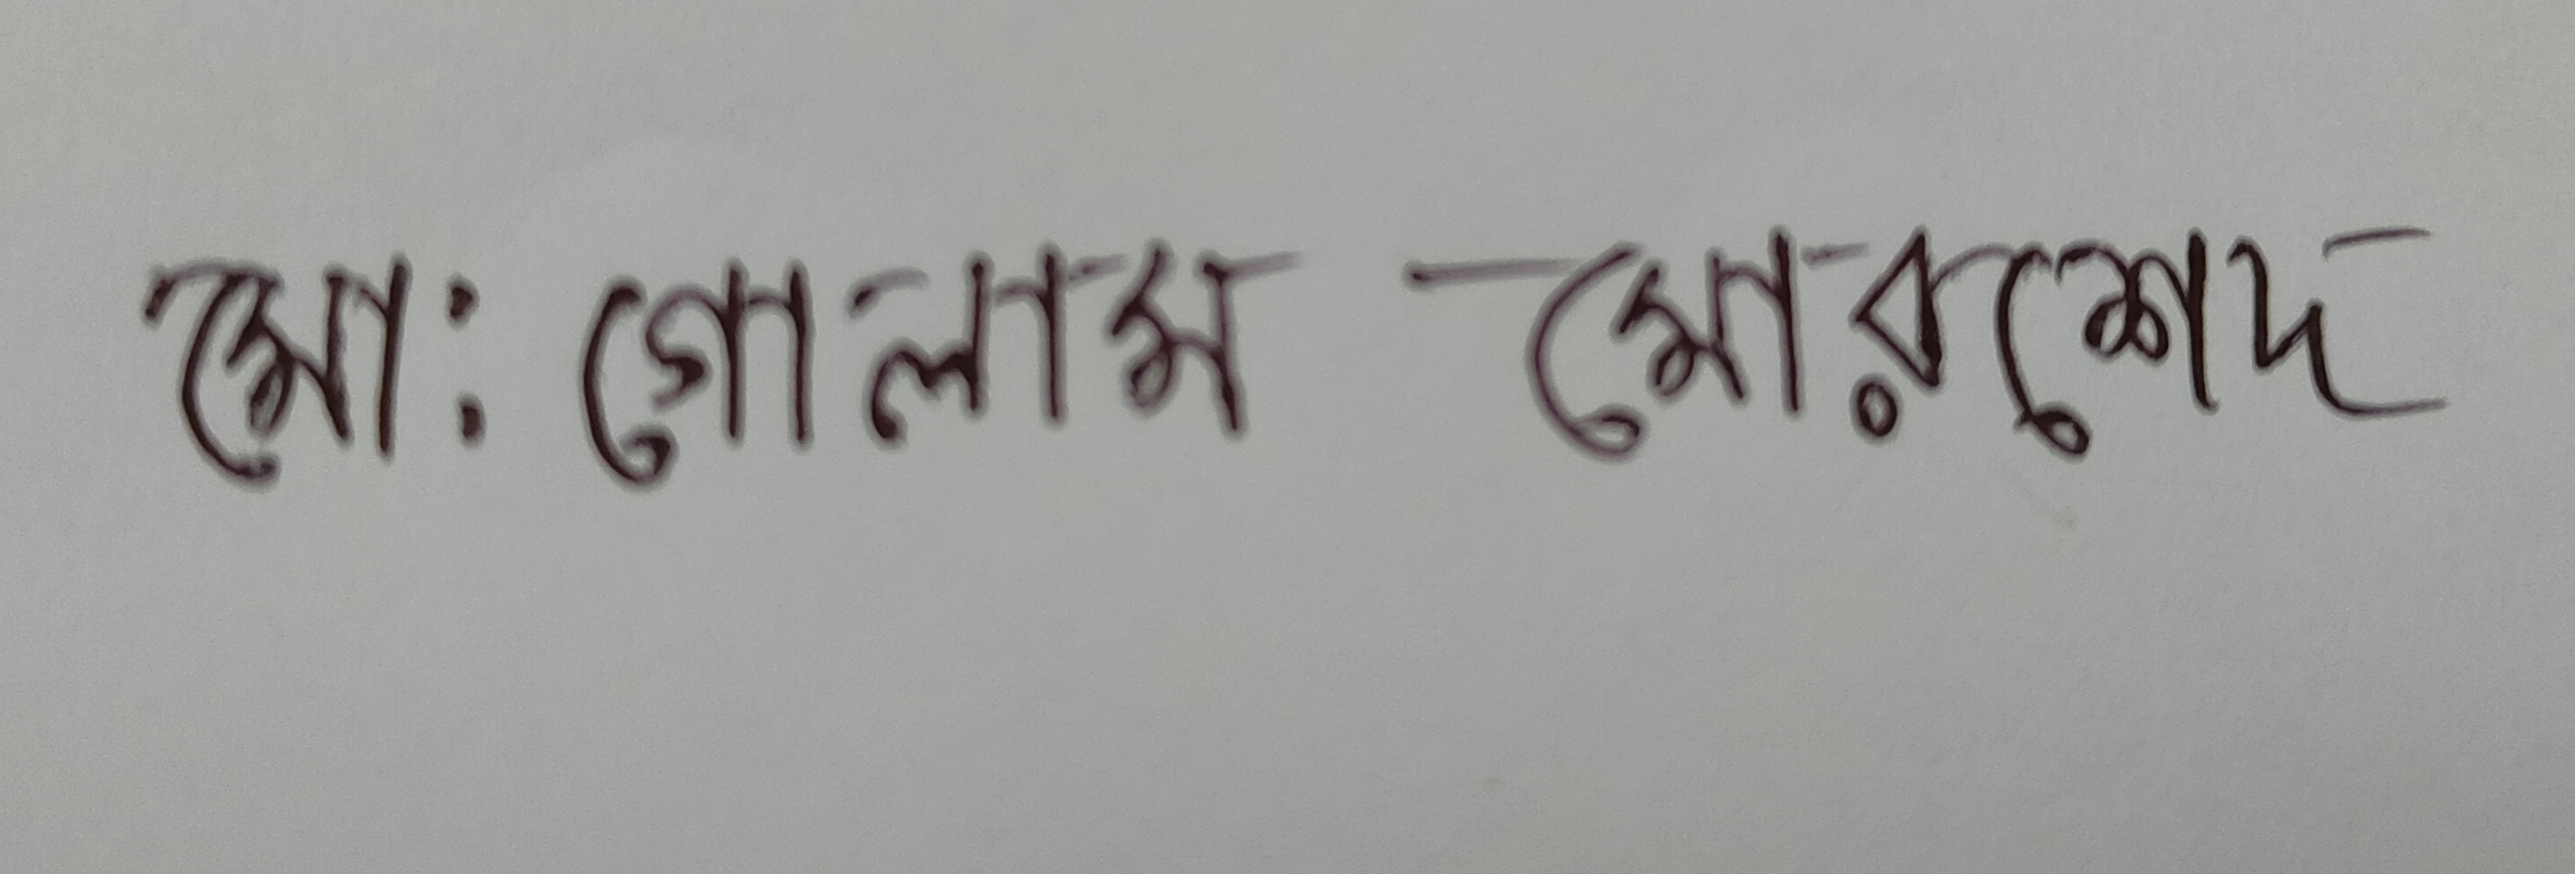 মো: গোলাম মোরশেদ